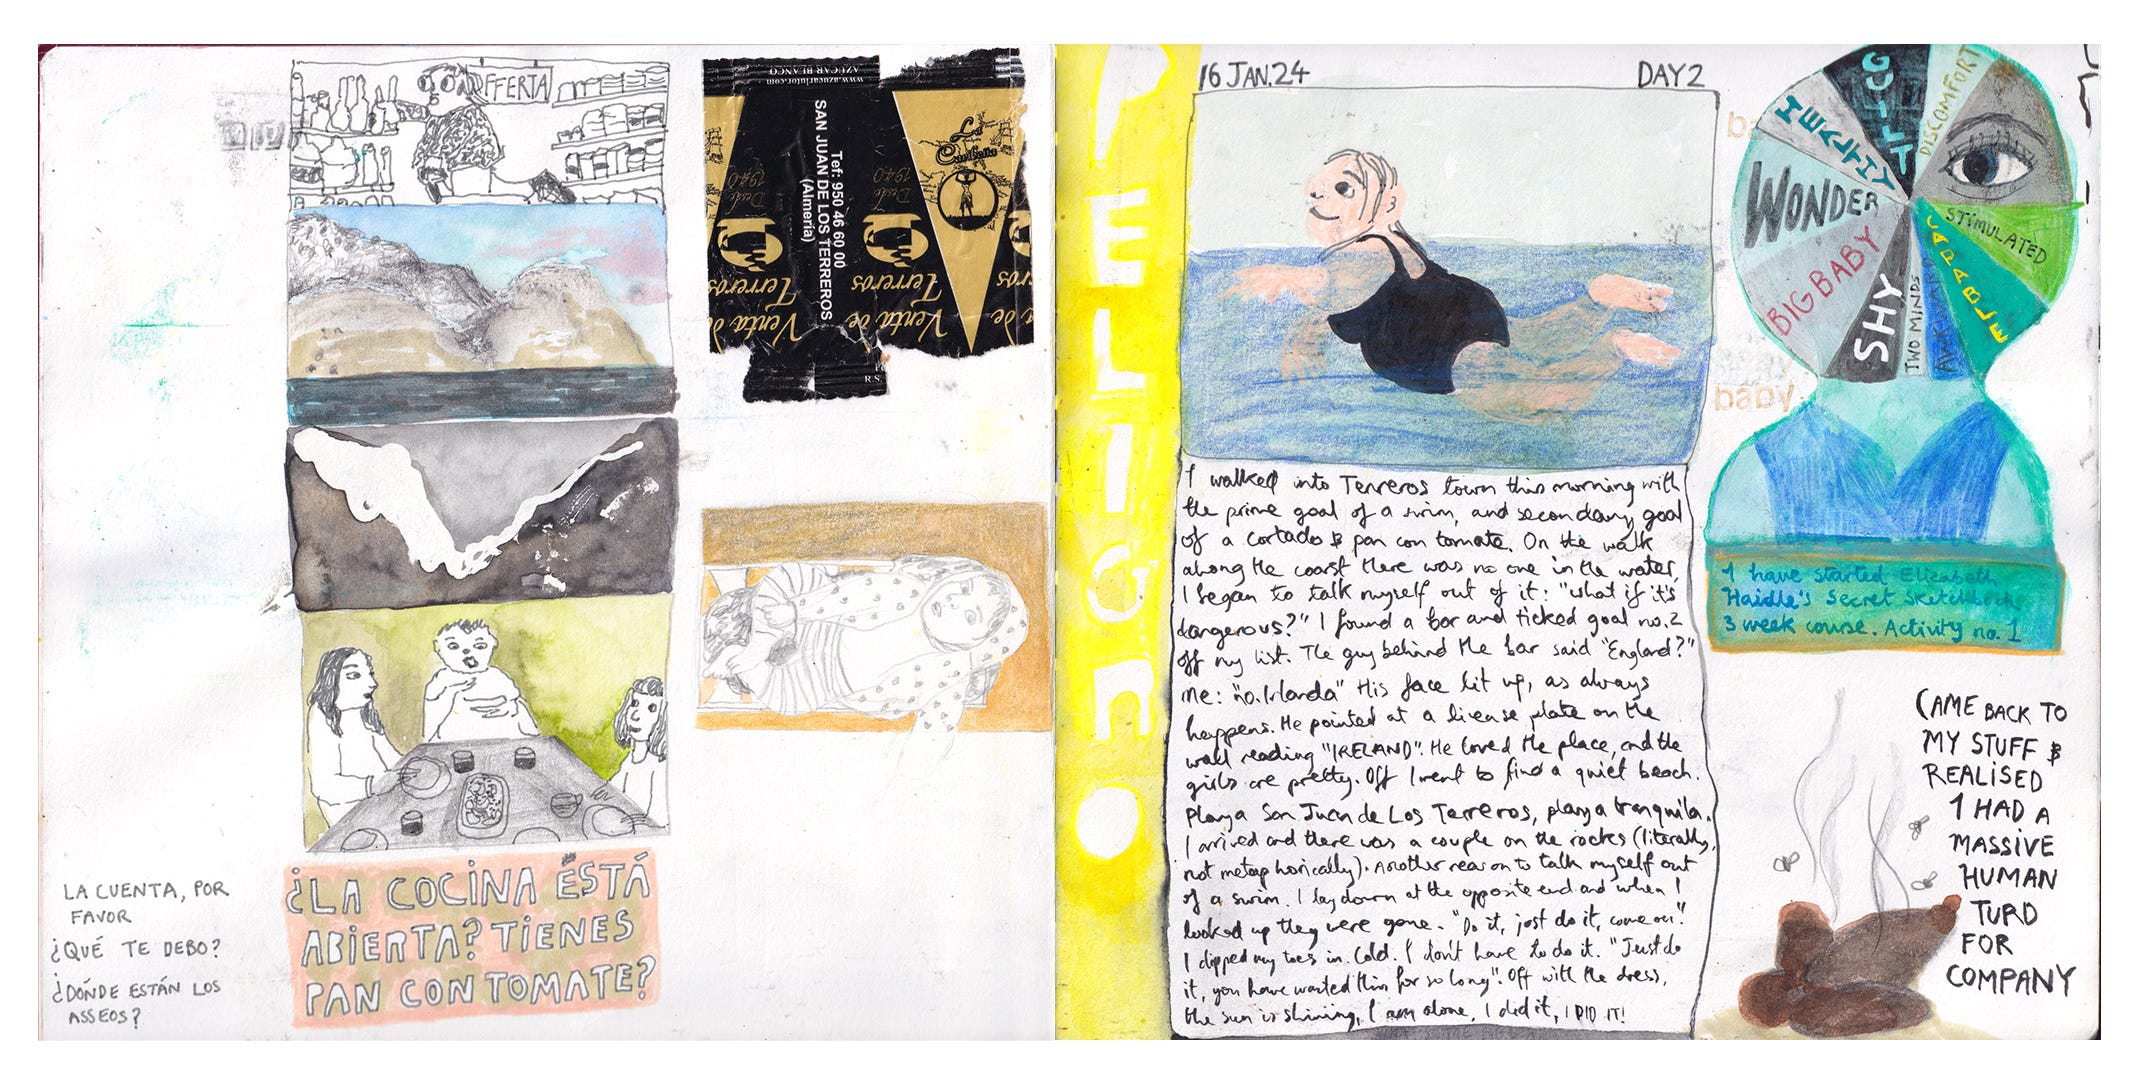 OFFERTA
LA CUENTA, POR
FAVOR
¿QUÉ TE DEBO?
¿DÓNDE ESTÁN LOS
ASSEOS?
¿LA COCINA ESTÁ
ABIERTA? TIENES
PAN CON TOMATE?
www.azucarlutor.com
AZÚCAR BLANCO
Tef: 950 46 60 00
SAN JUAN DE LOS TERREROS
(Almería)
La
Caribeña
Desde
1940
Desde
1940
Venta de
Terreros
Venta de
Terreros
PELIGRO
16 JAN.24
DAY2
I walked into Terreros town this morning with
the prime goal of a swim, and secondary goal
of a cortado & pan con tomate. On the walk
along the coast there was no one in the water,
I began to talk myself out of it: "what if it's
dangerous?" I found a bar and ticked goal no.2
off my list. The guy behind the bar said "England?"
Me: "no. Irlanda" His face lit up, as always
happens. He pointed at a license plate on the
wall reading "IRELAND". He loved the place, and the
girls are pretty. Off I went to find a quiet beach.
Playa San Juan de Los Terreros, playa tranquila.
I arrived and there was a couple on the rocks (literally,
not metaphorically). Another reason to talk myself out
of a swim. I lay down at the opposite end and when I
looked up they were gone. "Do it, just do it, come on!"
I dipped my toes in. Cold. I don't have to do it. "Just do
it, you have wanted this for so long". Off with the dress,
the sun is shining, I am alone, I did it, I DID IT!
GUILT
DISCOMFORT
HEALTHY
WONDER
BIG BABY
SHY
TWO MINDS
AWKWARD
STIMULATED
baby
I have started Elizabeth
Haidle's Secret Sketchbook
3 week course. Activity no. 1
CAME BACK TO
MY STUFF &
REALISED
I HAD A
MASSIVE
HUMAN
TURD
FOR
COMPANY